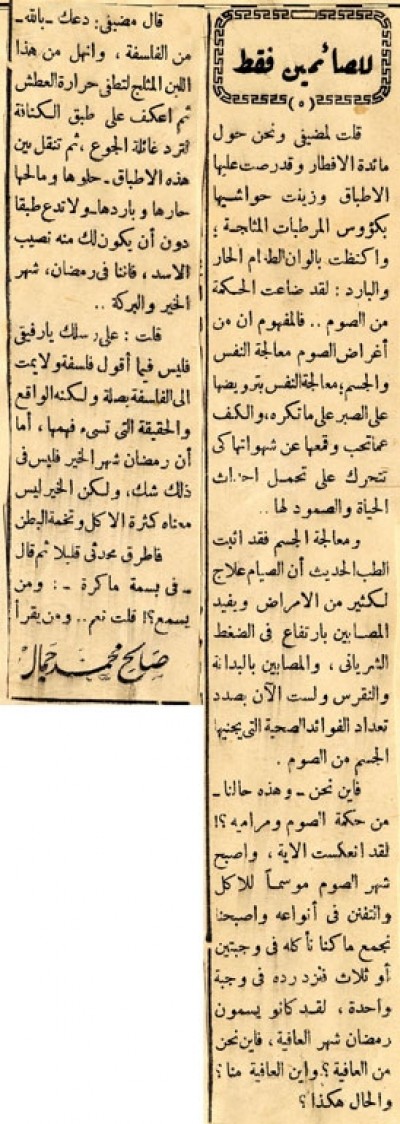 للصائمين فقط
(٥)
قلت لمضيفى ونحن حول
مائدة الافطار وقد رصت عليها
الاطباق وزينت حواشيها
بكؤوس المرطبات المثلجة ؛
واكتظت بالوان الطعام الحار
والبارد : لقد ضاعت الحكمة
من الصوم .. فالمفهوم ان من
أغراض الصوم معالجة النفس
والجسم؛ معالجة النفس بترويضها
على الصبر على ما تكره، والكف
عما تحب وقمعها عن شهواتها كى
تتحرك على تحمل احداث
الحياة والصمود لها ..
ومعالجة الجسم فقد اثبت
الطب الحديث أن الصيام علاج
لكثير من الامراض ويفيد
المصابين بارتفاع فى الضغط
الشريانى ، والمصابين بالبدانة
والنقرس ولست الآن بصدد
تعداد الفوائد الصحية التى يجنيها
الجسم من الصوم .
فاين نحن ـ وهذه حالنا ـ
من حكمة الصوم ومراميه ؟!
لقد انعكست الاية ، واصبح
شهر الصوم موسماً للاكل
والتفنن فى أنواعه واصبحنا
نجمع ما كنا نأكله فى وجبتين
أو ثلاث فنزدرده فى وجبة
واحدة ، لقد كانو يسمون
رمضان شهر العافية ، فاين نحن
من العافية ؟. واين العافية منا ؟
والحال هكذا ؟
قال مضيفى : دعك ـ بالله ـ
من الفلسفة ، وانهل من هذا
اللبن المثلج لتطفى حرارة العطش
ثم اعكف على طبق الكنافة
لتطرد غائلة الجوع ، ثم تنقل بين
هذه الاطباق ـ حلوها ومالحها
حارها وباردها ـ ولا تدع طبقا
دون أن يكون لك منه نصيب
الاسد ، فاننا فى رمضان ، شهر
الخير والبركة ..
قلت : على رسلك يا رفيقى
فليس فيما أقول فلسفة ولا يمت
الى الفلاسفة بصلة ولكنه الواقع
والحقيقة التى تسىء فهمها ، أما
أن رمضان شهر الخير فليس فى
ذلك شك ، ولكن الخير ليس
معناه كثرة الاكل وتخمة البطن
فاطرق محدثى قليلا ثم قال
ـ فى بسمة ماكرة ـ : ومن
يسمع ؟! قلت نعم .. ومن يقرأ
صالح محمد جمال